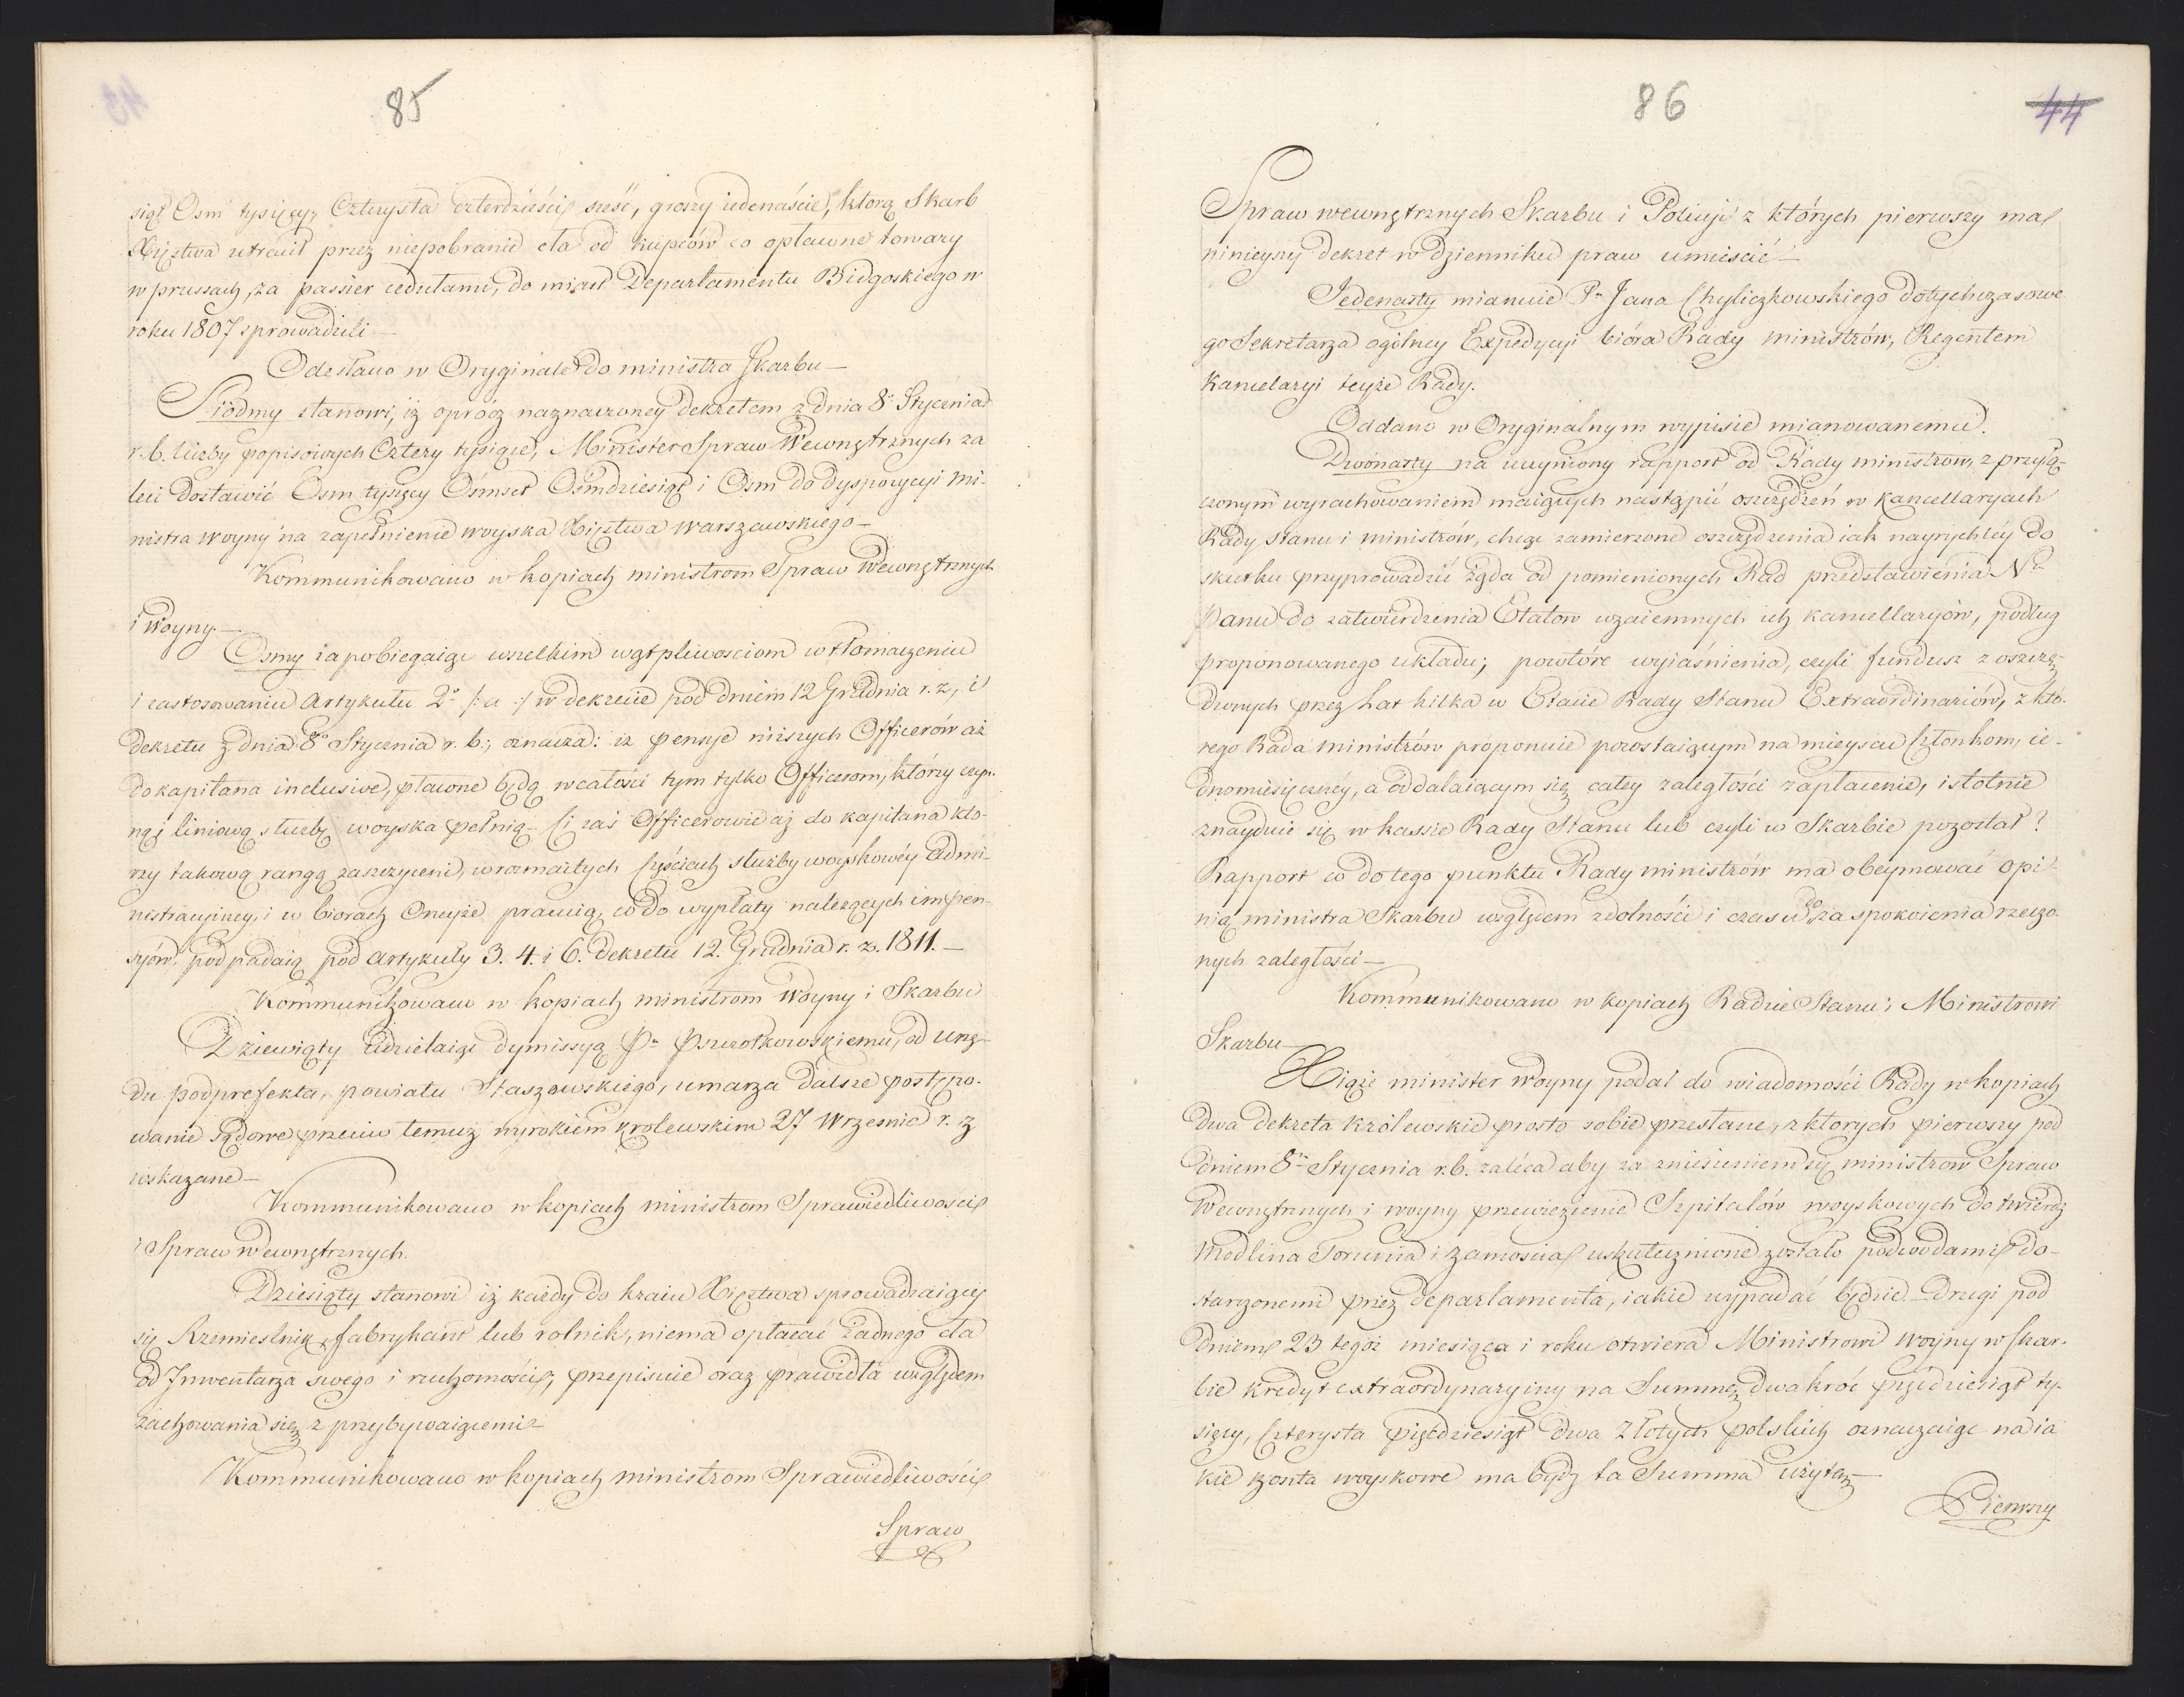 85
siąt Osm tysięcy, Czterysta czterdzieści sześć, groszy iedenaście, ktorą Skarb
Xięztwa utracił przez niepobranie cła od kupców co opłacone towary
w prussach, za passier cedułami, do miast Departamentu Bidgoskiego w
roku 1807 sprowadzili —
Odesłano w Oryginale do ministra Skarbu —
Siódmy stanowi, iż oprócz naznaczoney dekretem z dnia 8° Stycznia
r. b. liczby popisowych Cztery tysiące, Minister Spraw Wewnętrznych za
leci dostawić Osm tysięcy Ośmset Ośmdziesiąt i Osm do dyspozycyi Mi-
nistra woyny na zapełnienie woyska Xięztwa Warszawskiego —
Kommunikowano w kopiach ministrom Spraw Wewnętrznych
i Woyny —
Osmy zapobiegaiąc wszelkim wątpliwosciom w tłomaczeniu
i zastosowaniu Artykułu 2° /: a :/ w dekrecie pod dniem 12 Grudnia r. z, i
dekretu z dnia 8° Stycznia r. b., oznacza: iz pensye niższych Officerów aż
do kapitana inclusive, płacone będą w całości tym tylko Officerom, którzy czyn-
ną liniową służbę woyska pełnią — Ci zaś Officerowie aż do kapitana któ-
rzy takową rangą zaszczyceni, w rozmaitych częściach służby woyskowéy admi-
nistracyiney, i w biorach Oneyże pracuią, co do wypłaty należących im pen-
syów, podpadaią pod artykuły 3. 4. i 6. dekretu 12. Grudnia r. z. 1811. —
Kommunikowano w kopiach ministrom Woyny i Skarbu
Dziewiąty udzielaiąc dymissyą Pu Pszczołkowskiemu, od Urzę-
du podprefekta, powiatu Staszowskiego, umarza dalsze postępo-
wanie sądowe przeciw temuż wyrokiem krolewskim 27 Wrzesnia r. z
wskazane —
Kommunikowano w kopiach ministrom Sprawiedliwosci
i Spraw Wewnętrznych.
Dziesiąty stanowi iż każdy do kraiu Xięztwa sprowadzaiący
się Rzemieslnik, fabrykant lub rolnik, niema opłacać żadnego cła
od Inwentarza swego i ruchomości, przepisuie oraz prawidła względem
zachowania się z przybywaiącemi —
Kommunikowano w kopiach ministrom Sprawiedliwości
Spraw
86
44
Spraw wewnętrznych Skarbu i Policyi z których pierwszy ma
ninieyszy dekret w dzienniku praw umieścić —
Jedenasty mianuie Pa Jana Chyliczkowskiego dotychczasowe
go Sekretarza ogólney Expedycyi bióra Rady ministrów, Regentem
Kancelaryi teyże Rady.
Oddano w Oryginalnym wypisie mianowanemu.
Dwónasty na uczyniony rapport od Rady ministrow, z przyłą-
czonym wyrachowaniem maiących nastąpić oszczędzeń w kancellaryach
Rady Stanu i ministrów, chcąc zamierzone oszczędzenia iak nayrychléy do
skutku przyprowadzić żąda od pomienionych Rad przedstawienia No
Panu do zatwierdzenia Etatow wzaiemnych ich kancellaryów, podług
proponowanego układu; powtóre wyiaśnienia, czyli fundusz z oszczę-
dzonych przez Lat kilka w Etacie Rady Stanu Extraordinariów, z któ-
rego Rada ministrów proponuie pozostaiącym na mieyscu Członkom, ie-
dnomiesięczney, a oddalaiącym się całey zaległości zapłacenie, istotnie
znayduie się w kassie Rady Stanu lub czyli w Skarbie pozostał?
Rapport co do tego punktu Rady ministrów ma obeymować opi-
nią ministra Skarbu względem zdolności i czasu do zaspokoienia rzeczo-
nych zaległości —
Kommunikowano w kopiach Radzie Stanu i Ministrowi
Skarbu —
Xiąże minister Woyny podał do wiadomości Rady w kopiach
dwa dekreta królewskie prosto sobie przesłane, z ktorych pierwszy pod
dniem 8m Stycznia r. b. zaléca aby za zniesieniem się ministrow Spraw
Wewnętrznych i woyny przewiezienie Szpitalów woyskowych do twierdz
Modlina Torunia i Zamoscia uskutecznione zostało podwodami do-
starczonemi przez departamenta, iakie wypadać będzie — drugi pod
dniem 23 tegoż miesiąca i roku otwiera Ministrowi Woyny w Skar-
bie kredyt extraordynaryiny na Summę dwakróć pięćdziesiąt ty-
sięcy, Czterysta pięćdziesiąt dwa Złotych polskich oznaczaiąc na ia
kie koszta woyskowe ma bydź ta Summa użytą —
Pierwszy